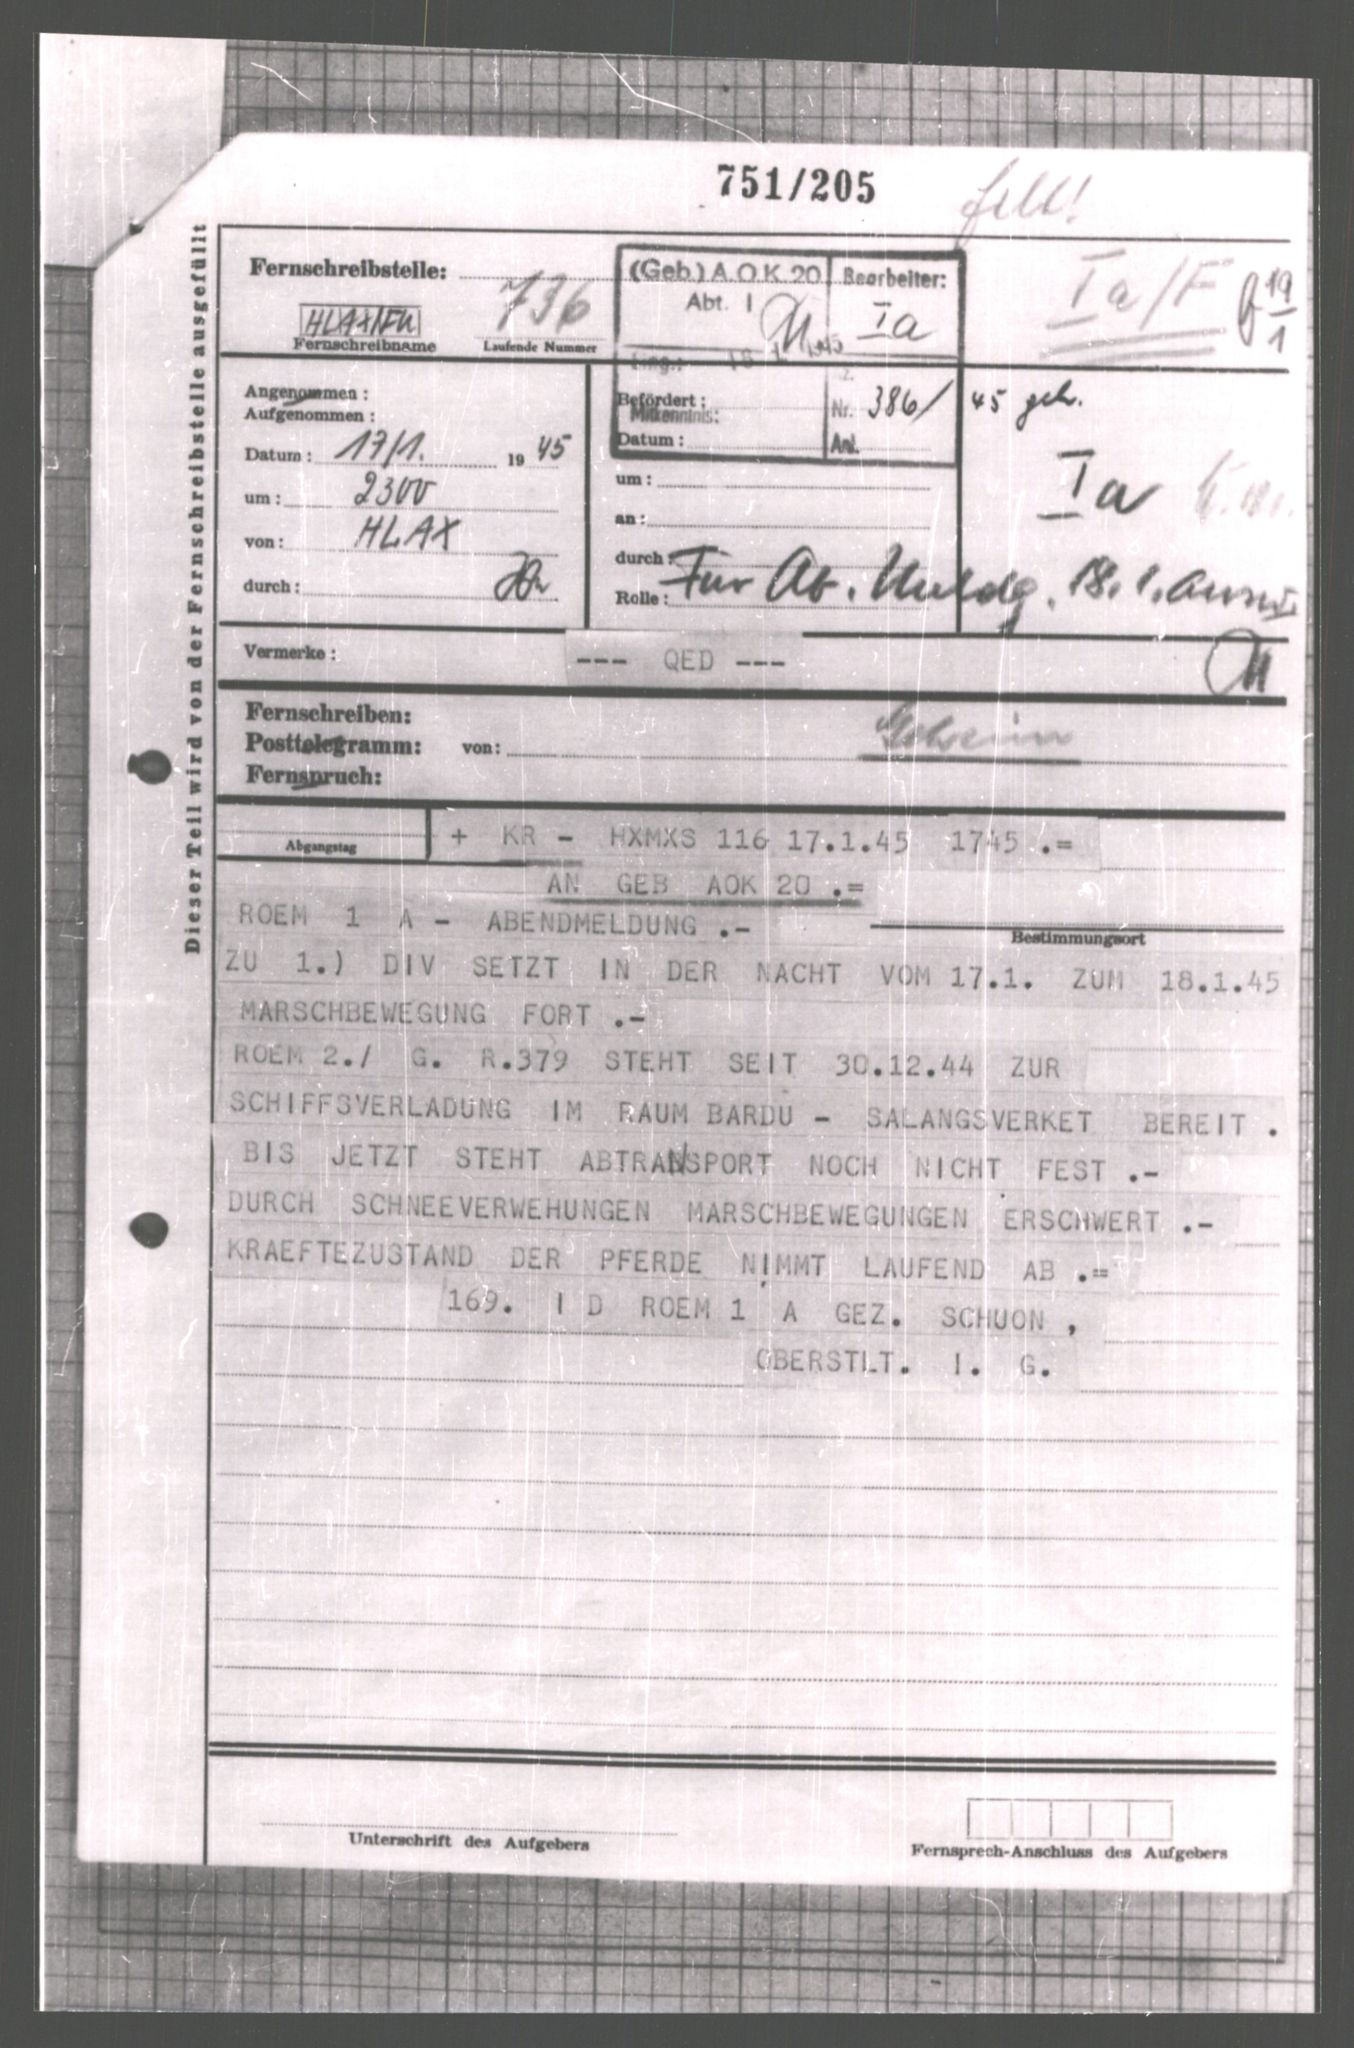 751/205
Dieser Teil wird von der Fernschreibstelle ausgefüllt
Fernschreibstelle:
736
Fernschreibname
Laufende Nummer
(Geb.) A.O.K. 20
Abt. I
Bearbeiter:
Ia
Ia/F
19
1
Angenommen:
Aufgenommen:
Datum: 17/1. 1945
um: 2300
von: HLAX
durch:
Befördert:
Mitkenntnis:
Nr. 386/45 geh.
Datum:
Anl.
um:
an:
durch:
Rolle:
Ia
Für Ab. Meldg. 18.1.
Vermerke:
--- QED ---
Fernschreiben:
Posttelegramm: von:
Fernspruch:
Geheim
Abgangstag
+ KR - HXMXS 116 17.1.45 1745 .=
AN GEB AOK 20 .=
Bestimmungsort
ROEM 1 A - ABENDMELDUNG .-
ZU 1.) DIV SETZT IN DER NACHT VOM 17.1. ZUM 18.1.45
MARSCHBEWEGUNG FORT .-
ROEM 2./ G. R.379 STEHT SEIT 30.12.44 ZUR
SCHIFFSVERLADUNG IM RAUM BARDU - SALANGSVERKET BEREIT .
BIS JETZT STEHT ABTRANSPORT NOCH NICHT FEST .-
DURCH SCHNEEVERWEHUNGEN MARSCHBEWEGUNGEN ERSCHWERT .-
KRAEFTEZUSTAND DER PFERDE NIMMT LAUFEND AB .=
169. I D ROEM 1 A GEZ. SCHUON ,
OBERSTLT. I. G.
Unterschrift des Aufgebers
Fernsprech-Anschluss des Aufgebers